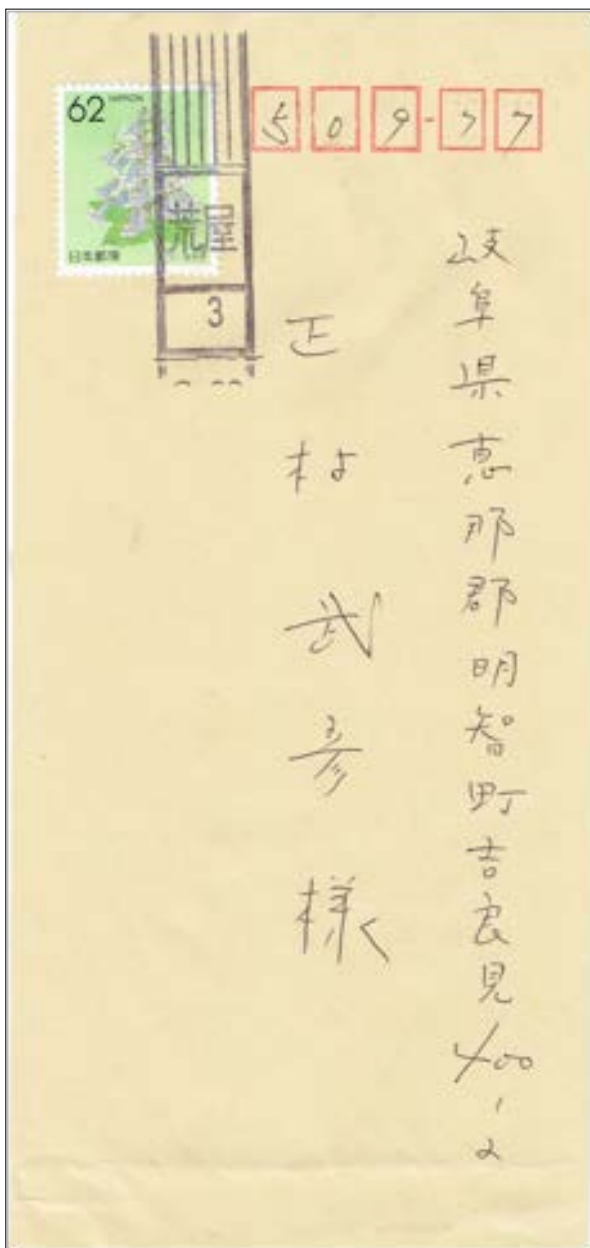 62
NIPPON
日本郵便
509-77
荒屋
3
岐阜県恵那郡明智町吉良見400,2
正村武彦様